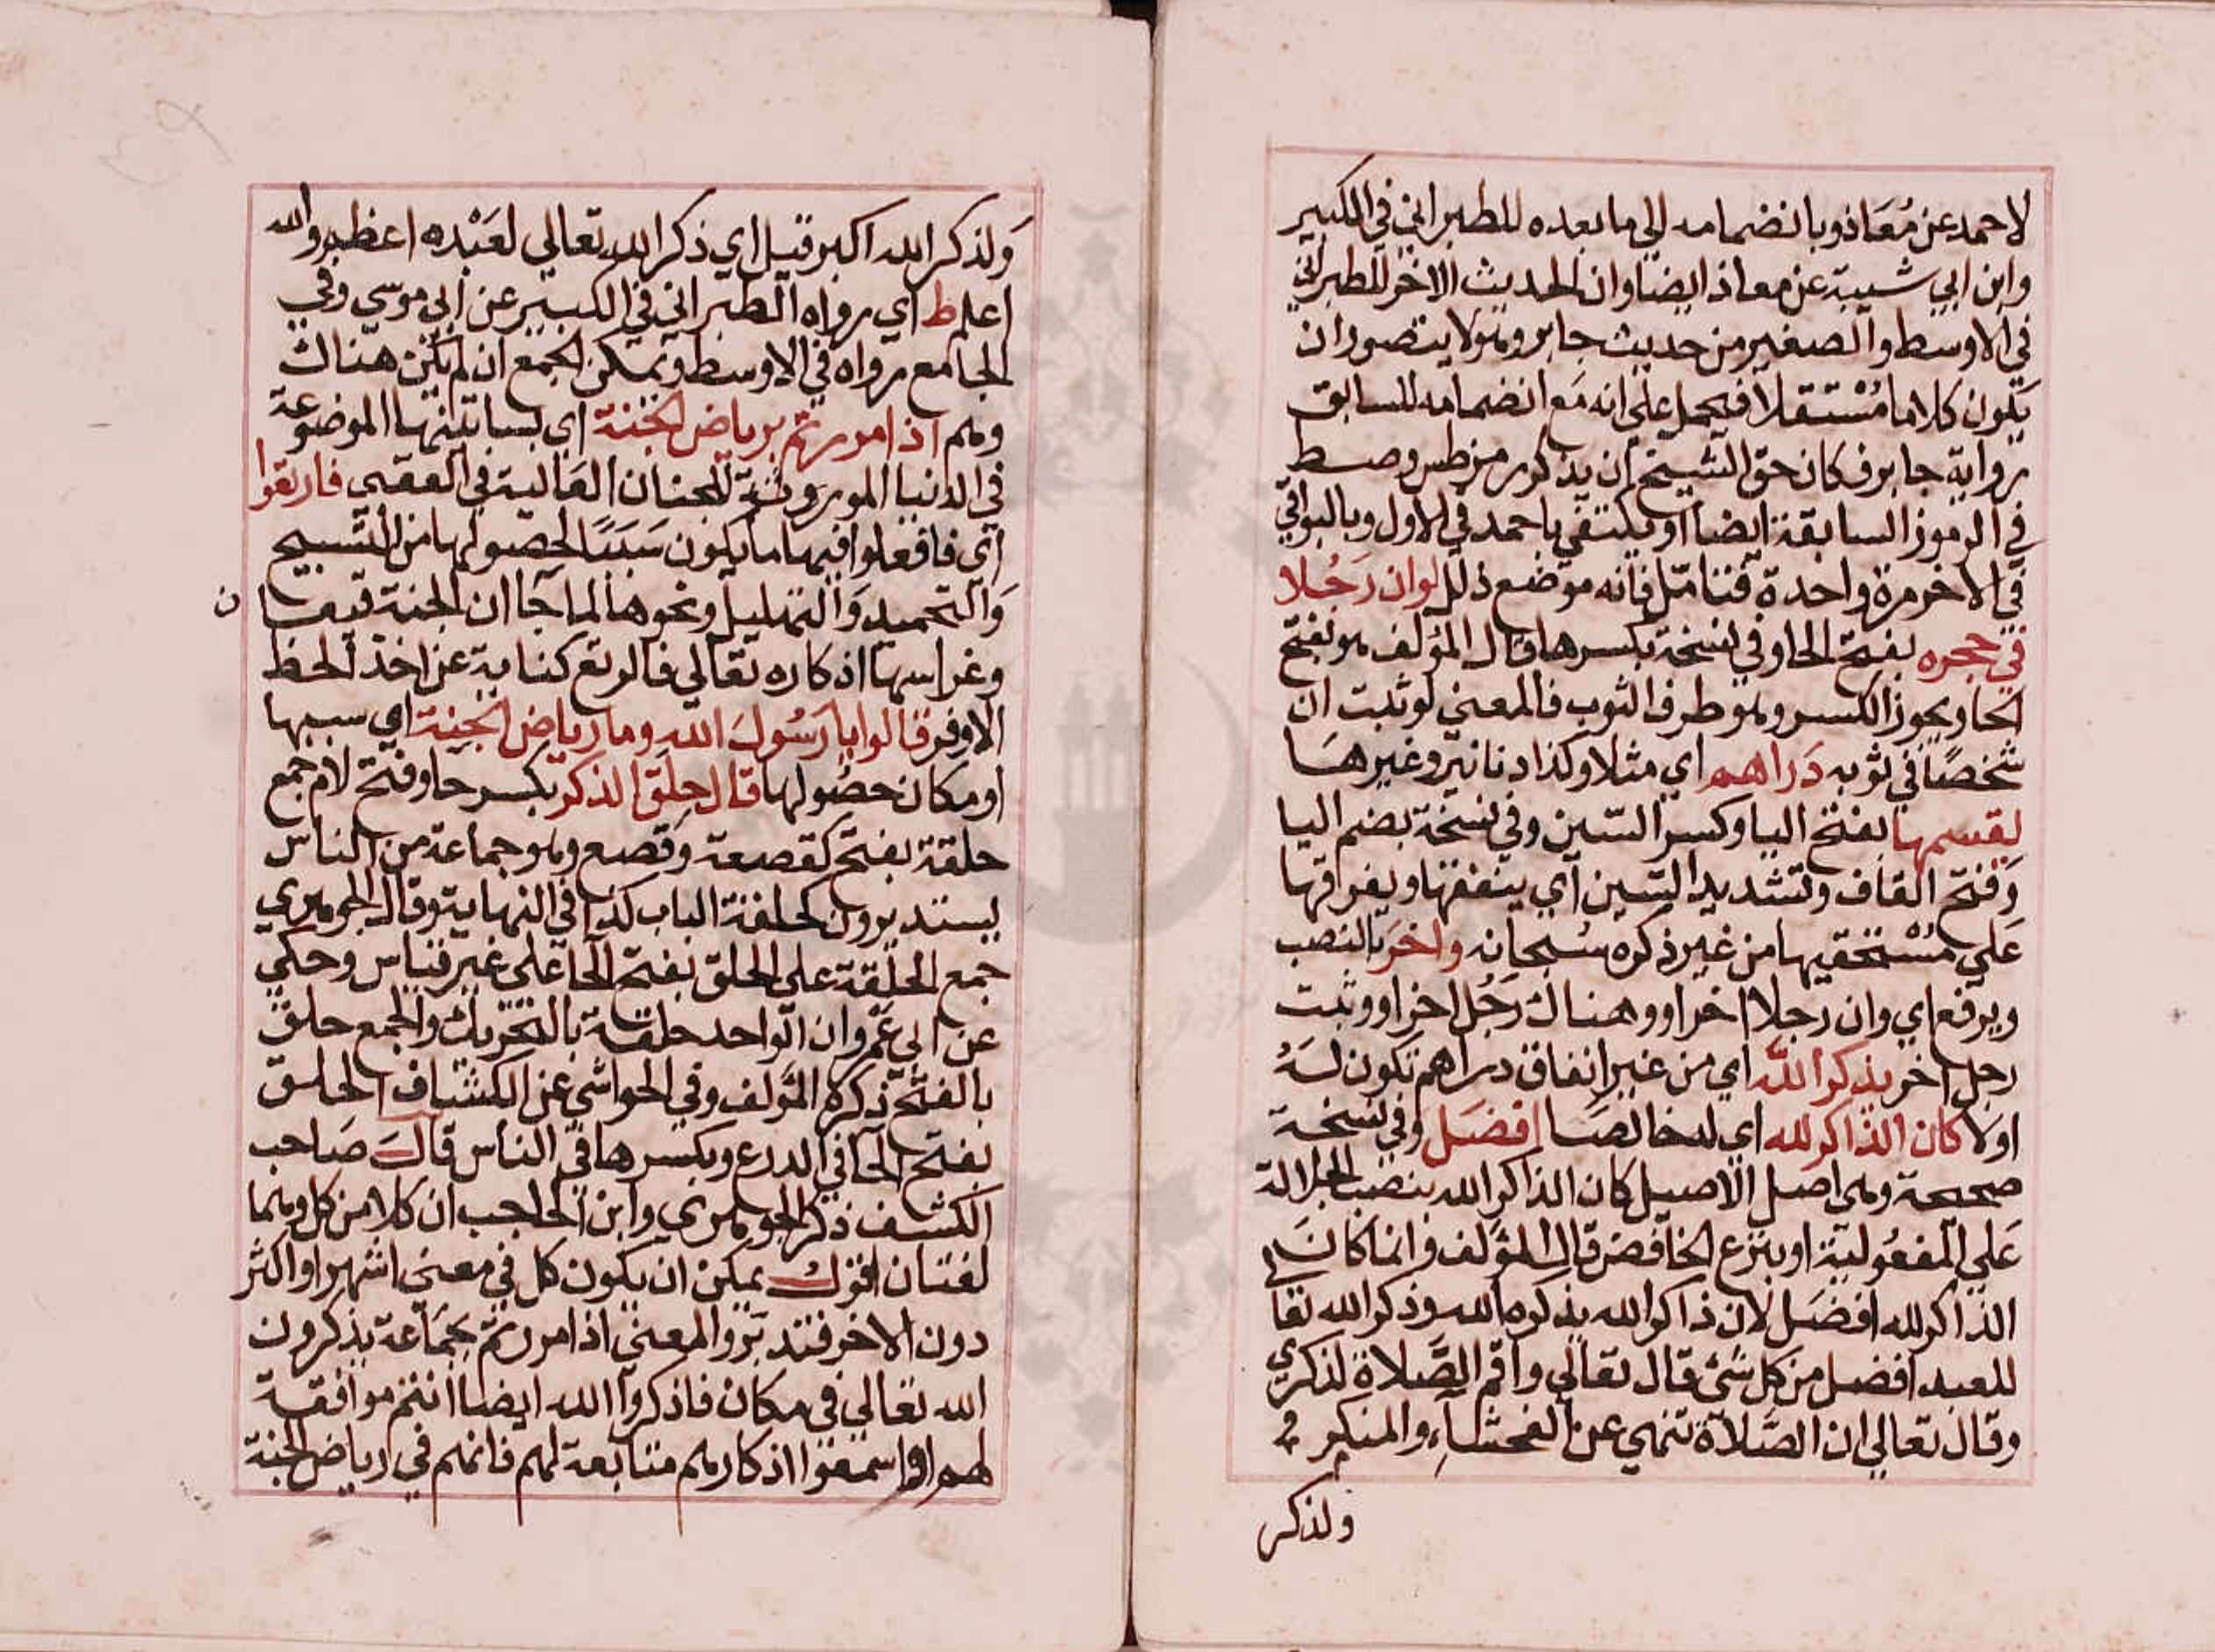 لاحمد عن مُعَاذ وبانضمامه الي ما بعده للطبراني في الكبير
وابن ابي شيبة عن معاذ ايضا وان الحديث الاخر للطبراني
في الاوسط والصغير من حديث جابر وهو لا يتصور ان
يكون كلاما مُسْتقلا فيحمل علي انه مَع انضمامه للسابق
رواية جابر فكان حق الشيخ ان يذكر رمز طس وصط
في الرموز السابقة ايضا او يكتفي باحمد في الاول وبالبواقي
في الاخر مرة واحدة فتامّل فانه موضع ذلل لوان رَجُلا
في حجره بفتح الحا وفي نسخة بكسرها قال المؤلف هو بفتح
الحا ويجوز الكسر وهو طرف الثوب فالمعني لو ثبت ان
شخصًا في ثوبه دَراهم اي مثلا وكذا دنانير وغيرهَا
يقسمها بفتح اليا وكسر السّين وفي نسخة بضم اليا
وَفتح القاف وتشديد السّين اي ينفقها ويفرقها
عَلي مُسْتحقيها من غير ذكره سُبحانه واخرَ بالنصب
ويرفع اي وان رجلا اخر او وهناك رَجُل اخر او وثبت
رجل اخر يذكر اللّه اي من غير انفاق دراهم تكون لهُ
اولا كان الذاكر لله اي له خالصَا افضَل وفي نسخة
صحيحة وهي اصل الاصيل كان الذاكر الله بنصب الجلالة
عَلي المفعُولية او بنزع الخافض قال المؤلف وانما كانَ
الذاكر لله افضَل لان ذاكر الله يذكره الله وذكر الله تعا
للعبد افضل من كل شئ قال تعالي واقم الصَّلاة لذكري
وقال تعالي ان الصَّلاة تنهي عن الفحشاءِ والمنكر
ولذكر
وَلذكر الله اكبر قيل اي ذكر الله تعالي لعَبْده اعظم والله
اعلم ط اي رواه الطبراني في الكبير عن ابي موسي وفي
الجامع رواه في الاوسط ويمكن الجمع ان لم يكن هناك
وهم اذا مررتم برياض الجنة اي بساتينها الموضوعة
في الدنيا الموروثة للجنان العَالية في العقبي فارتعوا
اي فافعلوا فيها ما يكون سَبَبًا لحصولها من التسبيح
وَالتحميد وَالتهليل ونحوها لما جَا ان الجنة قيعا ن
وغراسها اذكاره تعالي فالرتع كناية عن اخذ الحظ
الاوفر قالوا يا رَسُولَ الله وما رياض الجنة اي سببها
او مكان حصُولها قال حِلَق الذكر بكسر حا وفتح لام جمع
حلقة بفتح كقصعة وَقصع وهو جماعة من الناس
يستديرون كحلقة الباب كذا في النهاية وقال الجوهري
جمع الحلقة علي الحلق بفتح الحا علي غير قياس وحكي
عن ابي عَمْرو ان الواحد حلقة بالتحريك والجمع حلق
بالفتح ذكره المؤلف وفي الحواشي عن الكشاف الحلق
بفتح الحا في الدرع وبكسرها في الناس قالَ صَاحب
الكشف ذكر الجوهري وابن الحاجب ان كلا من كل وهما
لغتان اقول يمكن ان يكون كل في معني اشهر او اكثر
دون الاخر فتدبّر والمعني اذا مررتم بجمَاعة يذكرون
الله تعالي في مكان فاذكروا الله ايضا انتم موافقة
لهم او اسمعوا اذكارهم متابعة لهم فانهم في رياض الجنة